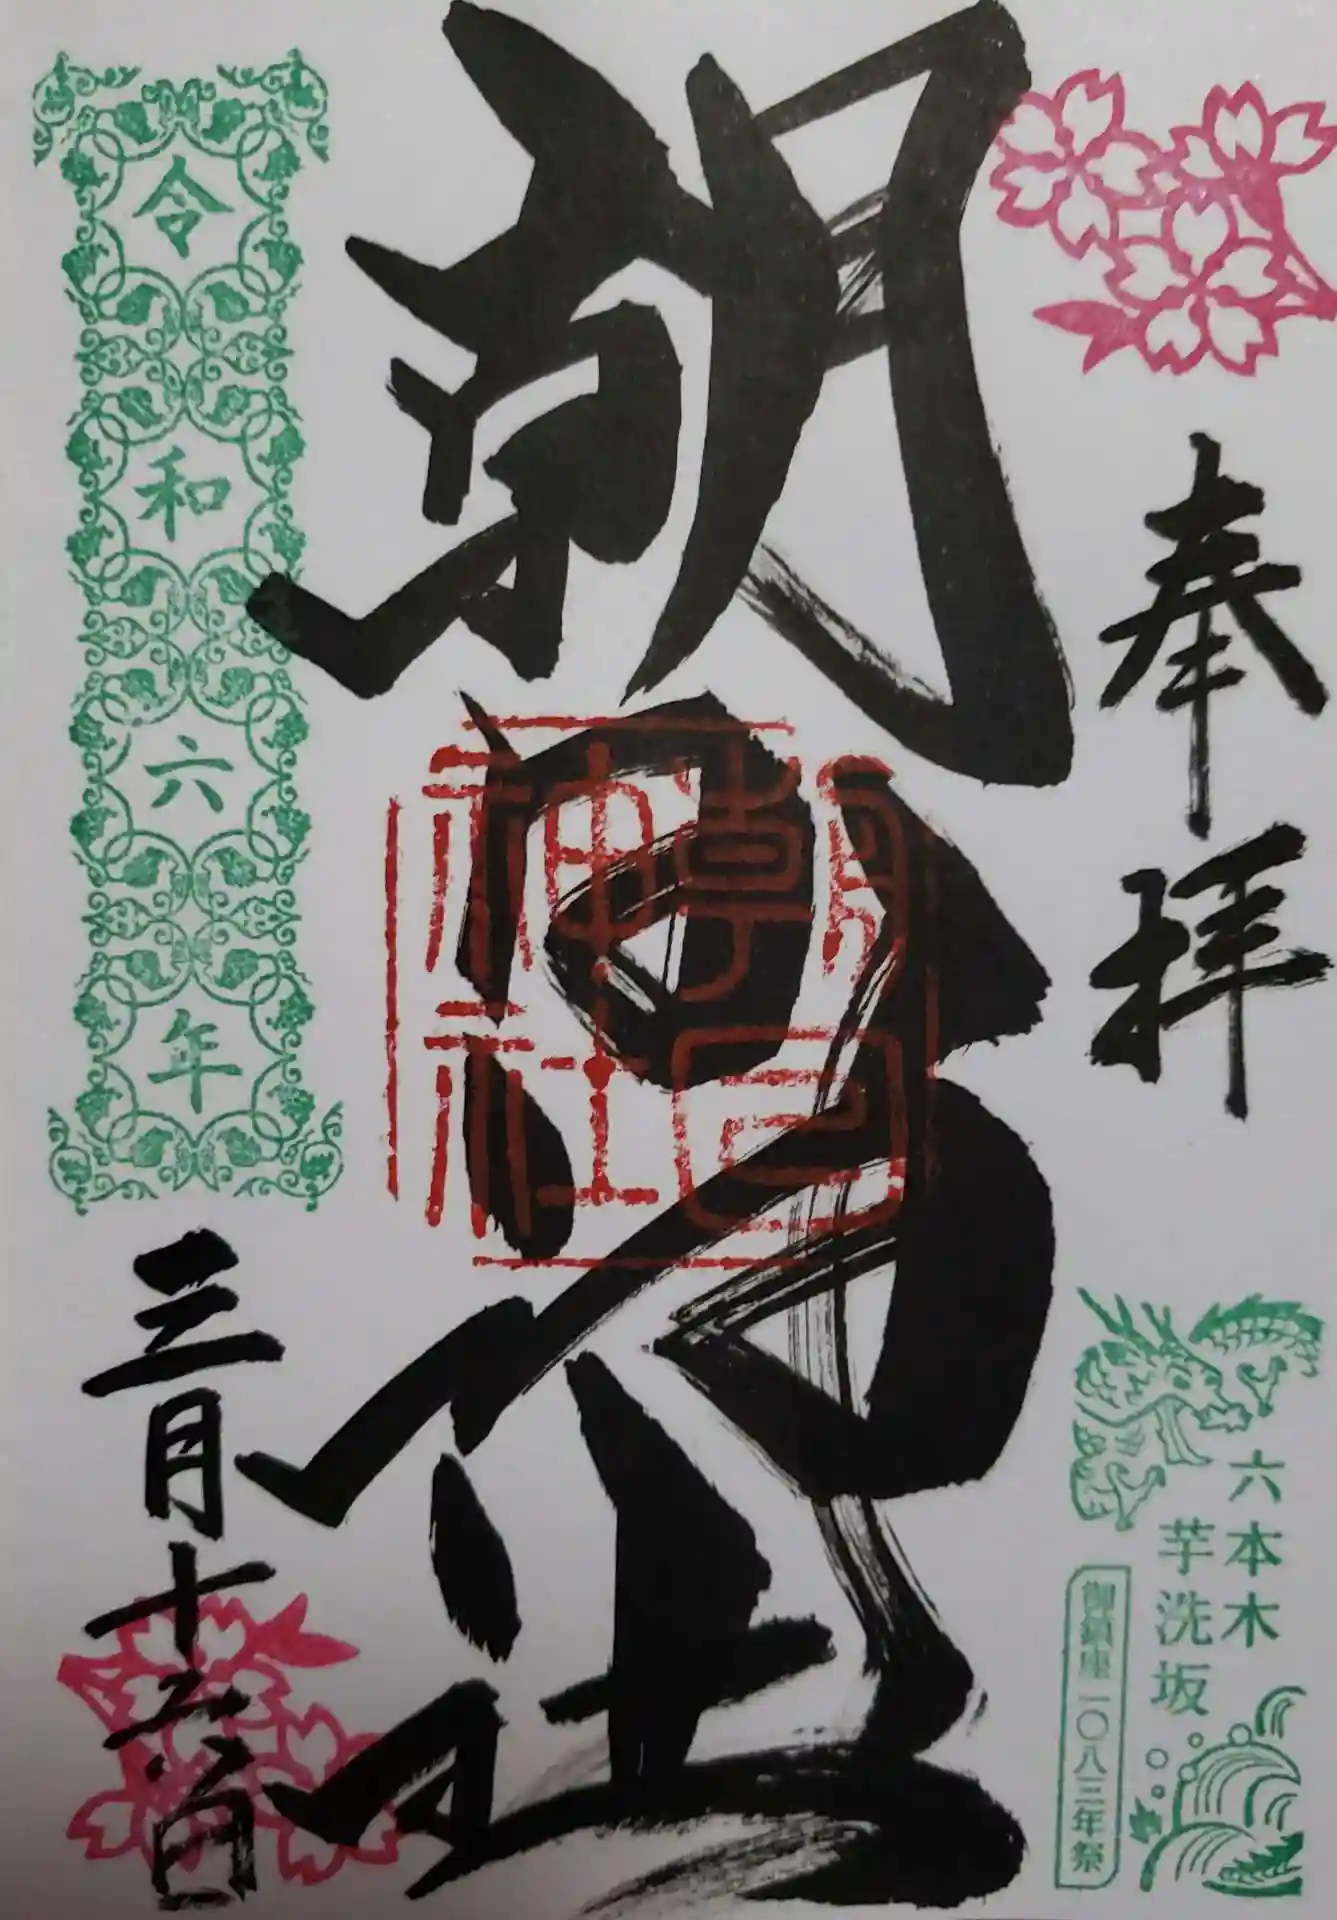 奉拝
六本木
芋洗坂
御鎮座一〇八三年祭
朝日神社
朝日
神社
令和六年
三月十六日